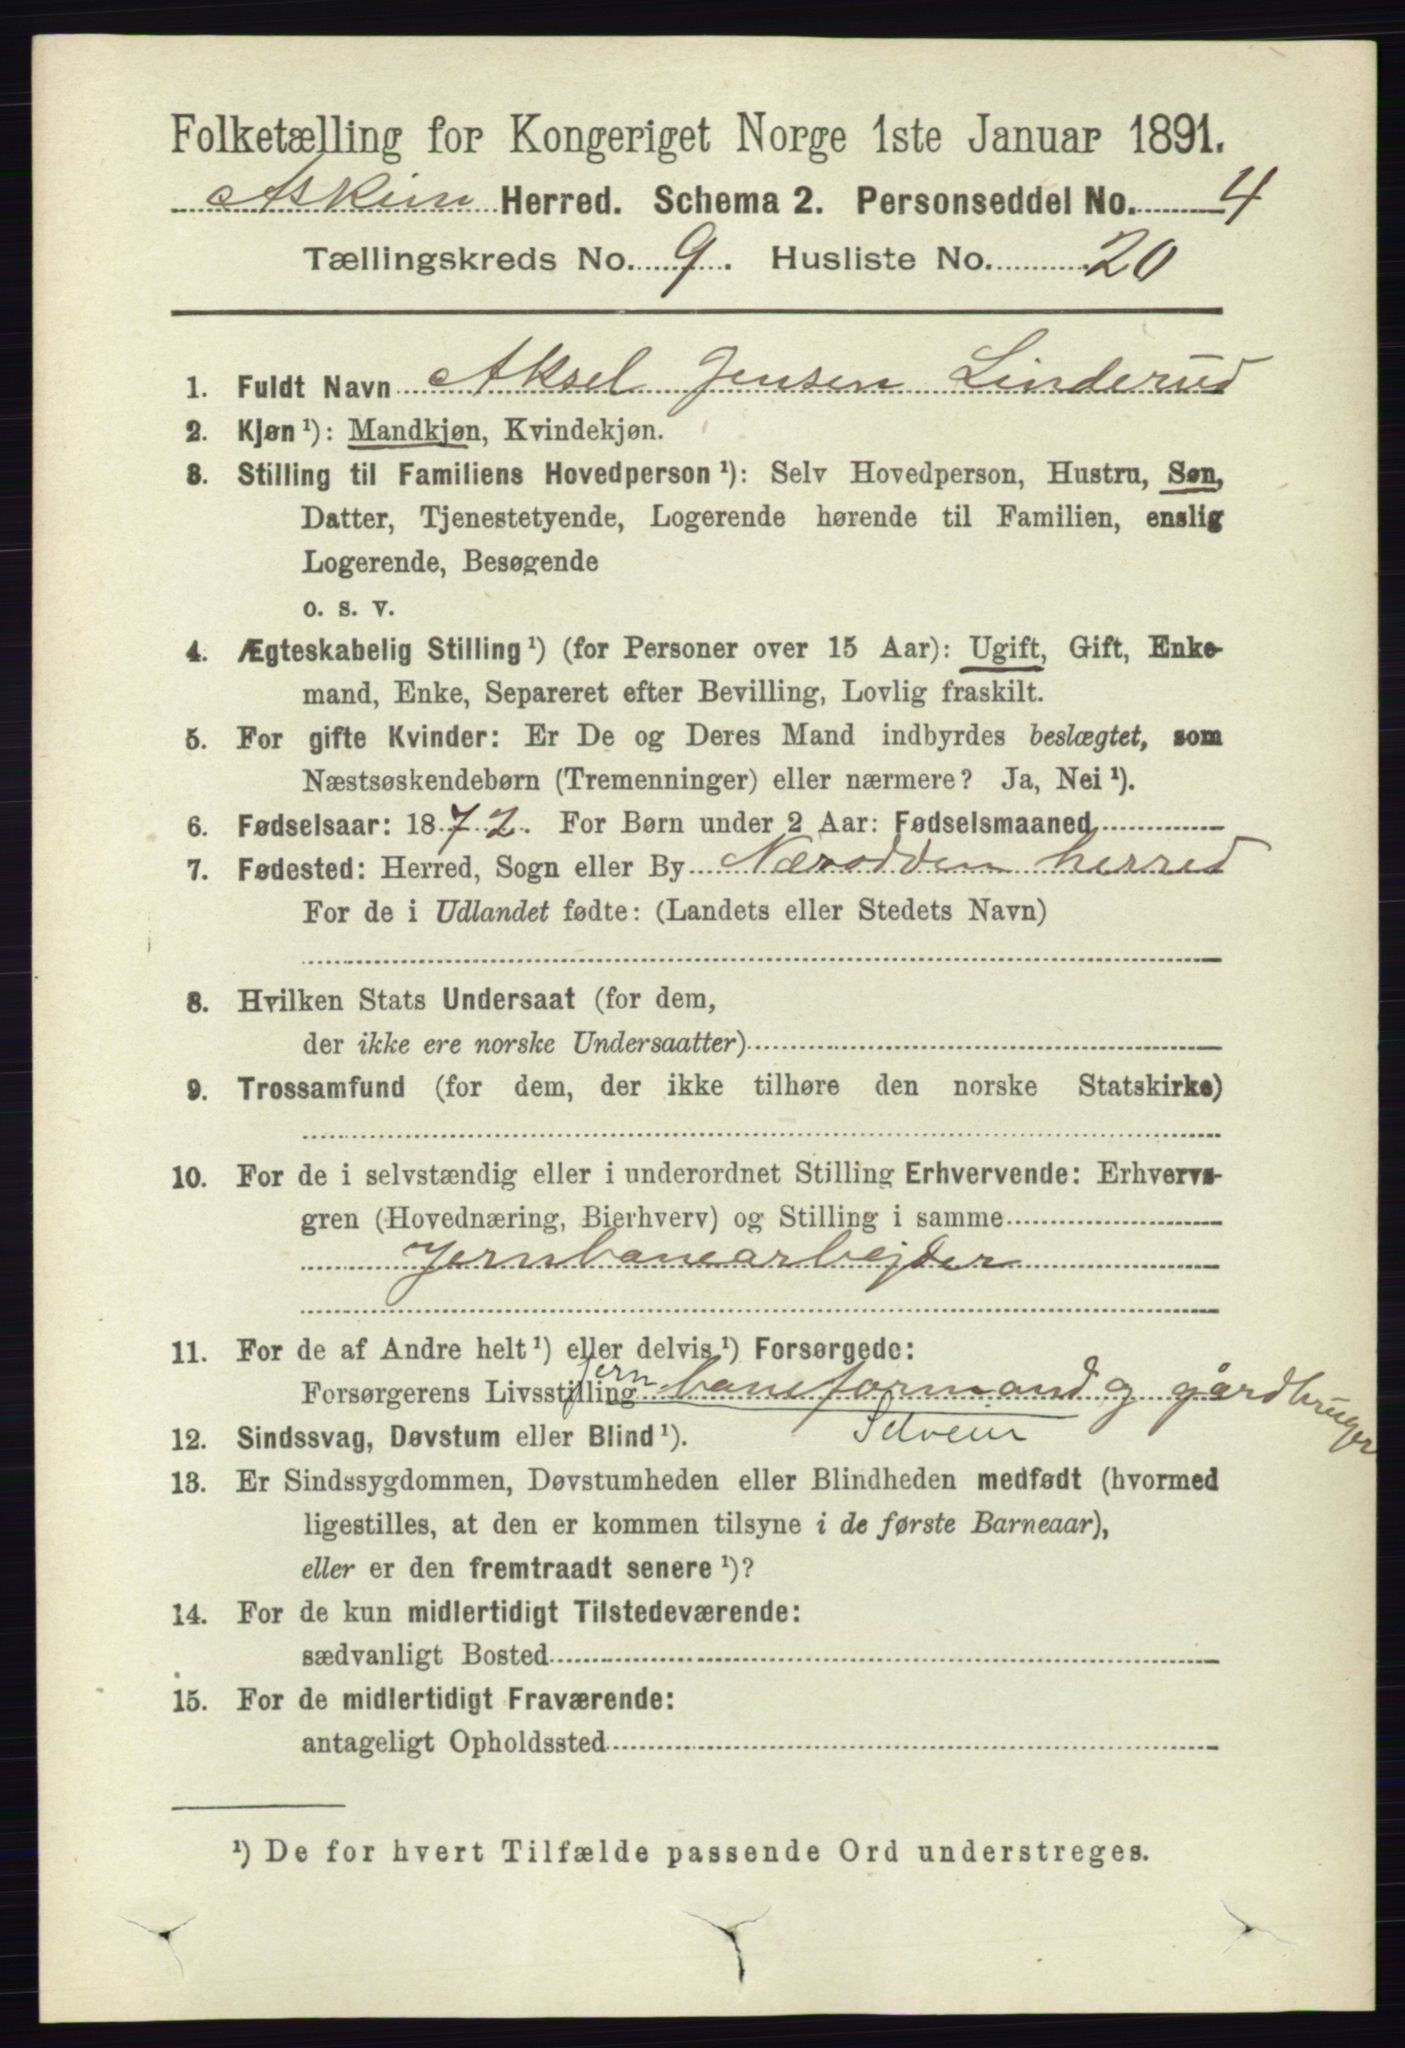 Folketælling for Kongeriget Norge 1ste Januar 1891.
Askim Herred. Schema 2. Personseddel No. 4
Tællingskreds No. 9. Husliste No. 20
1. Fuldt Navn Aksel Jensen Linderud
2. Kjøn ¹): Mandkjøn, Kvindekjøn.
3. Stilling til Familiens Hovedperson ¹): Selv Hovedperson, Hustru, Søn,
Datter, Tjenestetyende, Logerende hørende til Familien, enslig
Logerende, Besøgende
o. s. v.
4. Ægteskabelig Stilling ¹) (for Personer over 15 Aar): Ugift, Gift, Enke-
mand, Enke, Separeret efter Bevilling, Lovlig fraskilt.
5. For gifte Kvinder: Er De og Deres Mand indbyrdes beslægtet, som
Næstsøskendebørn (Tremenninger) eller nærmere? Ja, Nei ¹).
6. Fødselsaar: 1872. For Børn under 2 Aar: Fødselsmaaned
7. Fødested: Herred, Sogn eller By Næsodden herred
For de i Udlandet fødte: (Landets eller Stedets Navn)
8. Hvilken Stats Undersaat (for dem,
der ikke ere norske Undersaatter)
9. Trossamfund (for dem, der ikke tilhøre den norske Statskirke)
10. For de i selvstændig eller i underordnet Stilling Erhvervende: Erhvervs-
gren (Hovednæring, Bierhverv) og Stilling i samme
Jernbanearbejder
11. For de af Andre helt ¹) eller delvis ¹) Forsørgede:
Forsørgerens Livsstilling Jernbaneformand og gårdbruger
12. Sindssvag, Døvstum eller Blind ¹). Selveier
13. Er Sindssygdommen, Døvstumheden eller Blindheden medfødt (hvormed
ligestilles, at den er kommen tilsyne i de første Barneaar),
eller er den fremtraadt senere ¹)?
14. For de kun midlertidigt Tilstedeværende:
sædvanligt Bosted
15. For de midlertidigt Fraværende:
antageligt Opholdssted
¹) De for hvert Tilfælde passende Ord understreges.